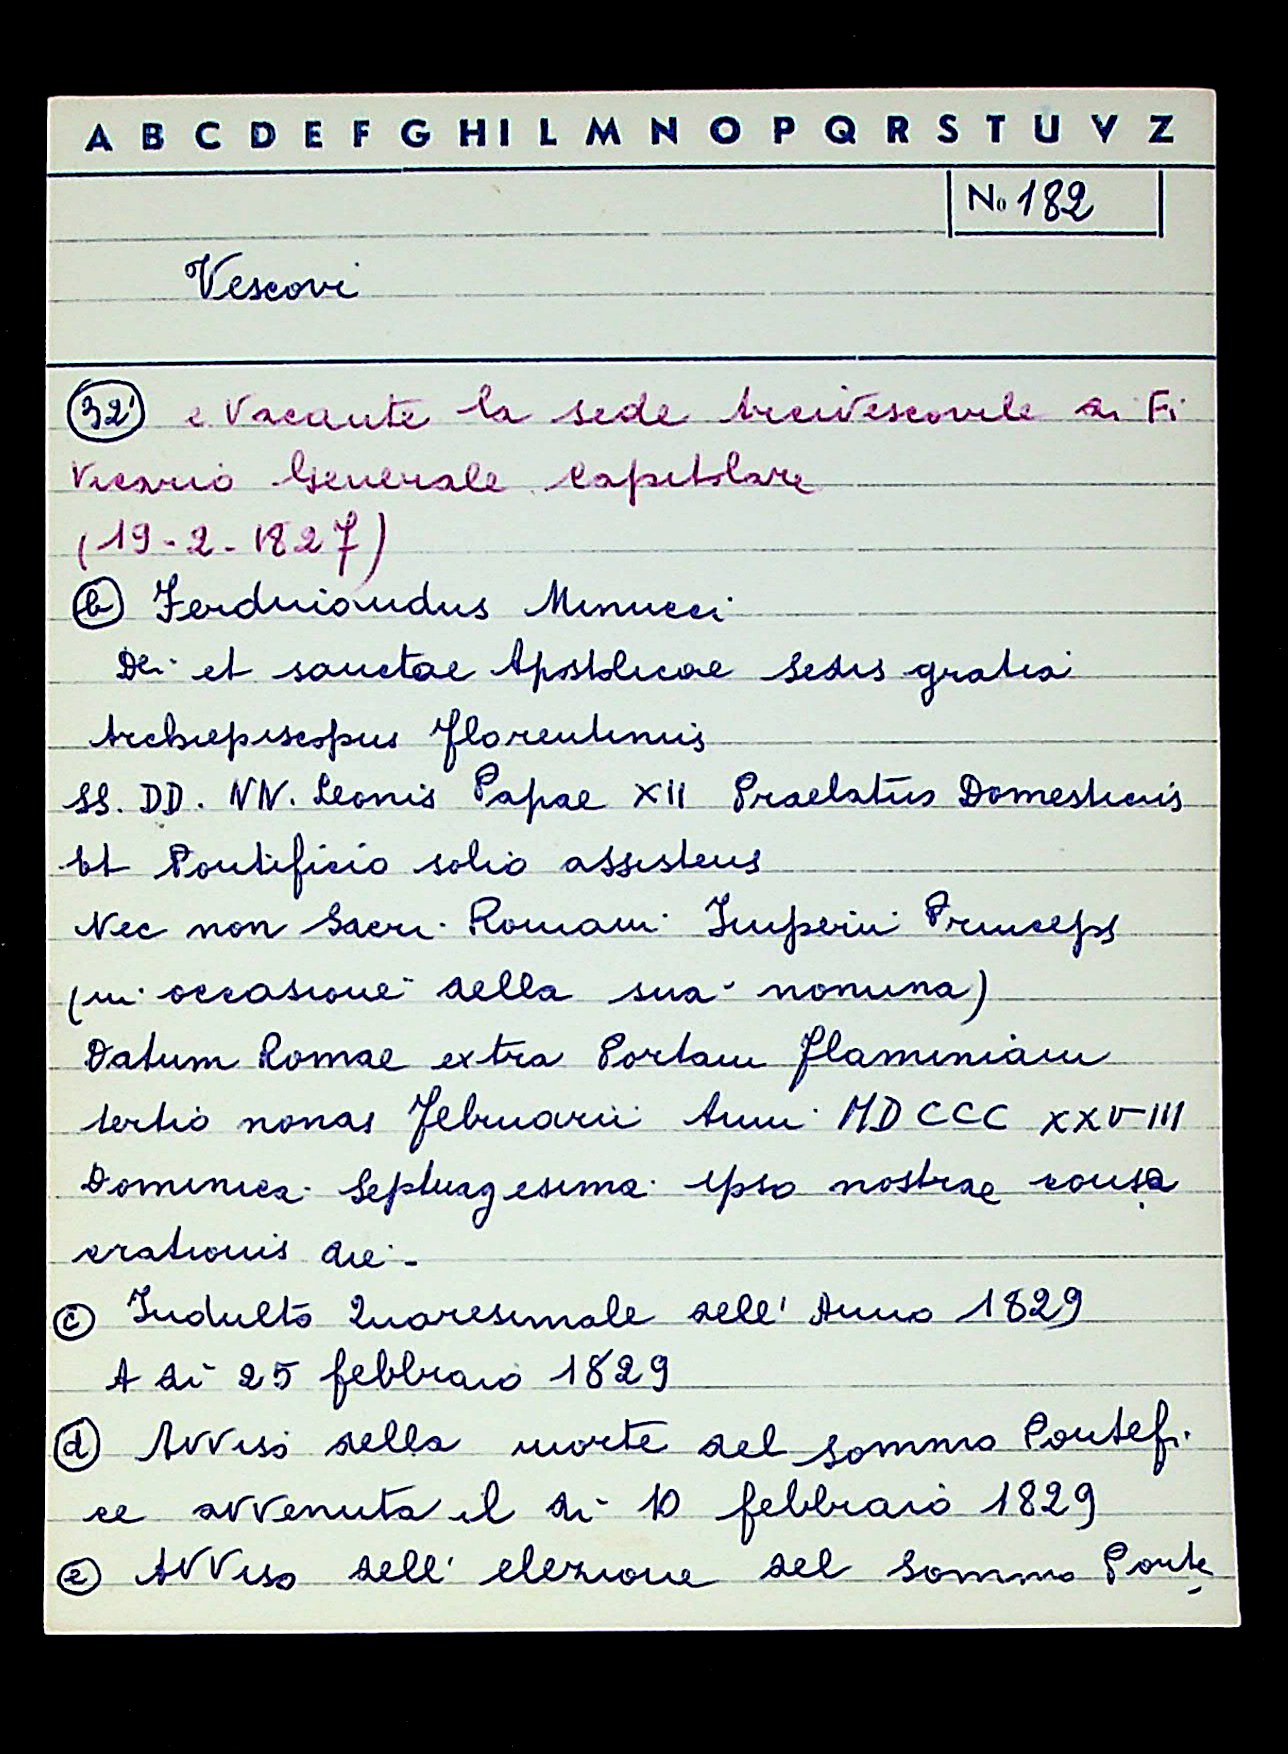 A B C D E F G H I L M N O P Q R S T U V Z
No 182
Vescovi
32' e Vacante la sede Arcivescovile di Fi
Vicario Generale Capitolare
(19-2-1827)
b Ferdinandus Minucci
Dei et sanctae Apostolicae Sedis gratia
Archiepiscopus Florentinus
SS. DD. NN. Leonis Papae XII Praelatus Domesticus
Et Pontificio solio assistens
Nec non Sacri Romani Imperii Princeps
(in occasione della sua nomina)
Datum Romae extra Portam Flaminiam
tertio nonas Februarii Anni MDCCCXXVIII
Dominica Septuagesima ipso nostrae conse
crationis die -
c Indulto Quaresimale dell' Anno 1829
A dì 25 febbraio 1829
d Avviso della morte del sommo Pontefi
ce avvenuta il dì 10 febbraio 1829
e Avviso dell' elezione del Sommo Ponte